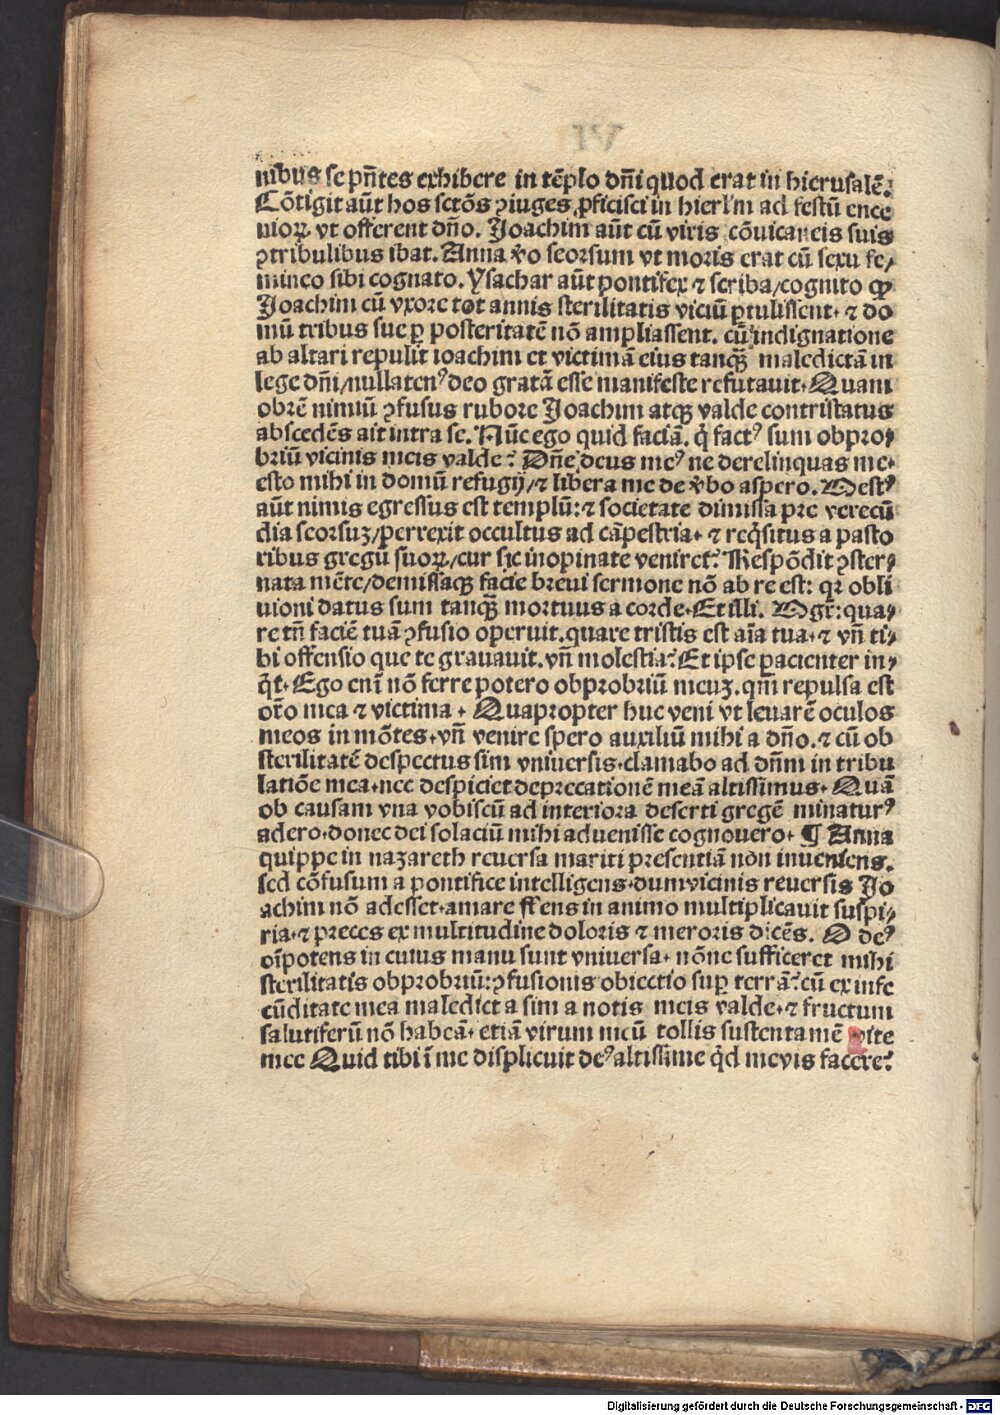 nibus se pñtes exhibere in tēplo dñi quod erat in hierusalē.
Cōtigit aūt hos sctōs ꝯiuges ꝓficisci in hierl'm ad festū ence
nioꝝ vt offerent dño. Joachim aūt cū viris cōuicaneis suis
ꝯtribulibus ibat. Anna v̊o seorsum vt moris erat cū sexu fe/
mineo sibi cognato. Ysachar aūt pontifex ⁊ scriba/cognito ꝙ
Joachim cū vxore tot annis sterilitatis viciū ꝑtulissent. ⁊ do
mū tribus sue ꝑ posteritatē nō ampliassent. cū indignatione
ab altari repulit ioachim et victimā eius tanqȝ̄ maledictā in
lege dñi/nullatenꝰ deo gratā esse manifeste refutauit. Quam
obrē nimiū ꝯfusus rubore Joachim atqȝ valde contristatus
abscedēs ait intra se. Nūc ego quid faciā. q̇ factꝰ sum obpro/
briū vicinis meis valde? Dñe deus meꝰ ne derelinquas me.
esto mihi in domū refugij/⁊ libera me de v̊bo aspero. Mestꝰ
aūt nimis egressus est templū: ⁊ societate dimissa pre verecū
dia seorsuȝ/perrexit occultus ad cāpestria. ⁊ req̇situs a pasto
ribus gregū suoꝝ/cur sic inopinate veniret? Respōdit ꝯster/
nata mēte/demissaqȝ facie breui sermone nō ab re est: qꝛ obli
uioni datus sum tanqȝ̄ mortuus a corde. Et illi. Mgr̄: qua/
re tñ faciē tuā ꝯfusio operuit. quare tristis est aīa tua. ⁊ vñ ti/
bi offensio que te grauauit. vñ molestia? Et ipse pacienter in/
q̇t. Ego enī nō ferre potero obprobriū meuȝ. qm̄ repulsa est
oīo mea ⁊ victima. Quapropter huc veni vt leuarē oculos
meos in mōtes. vñ venire spero auxiliū mihi a dño. ⁊ cū ob
sterilitatē despectus sim vniuersis. clamabo ad dñm in tribu
latiōe mea. nec despiciet deprecationē meā altissimus. Quā
ob causam vna vobiscū ad interiora deserti gregē minaturꝰ
adero. donec dei solaciū mihi aduenisse cognouero. ¶ Anna
quippe in nazareth reuersa mariti presentiā non inueniens.
sed cōfusum a pontifice intelligens. dum vicinis reuersis Jo
achim nō adesset. amare flens in animo multiplicauit suspi/
ria. ⁊ preces ex multitudine doloris ⁊ meroris dicēs. O deꝰ
oīpotens in cuius manu sunt vniuersa. nōne sufficeret mihi
sterilitatis obprobriū: ꝯfusionis obiectio suꝑ terrā? cū ex infe
cūditate mea maledicta sim a notis meis valde. ⁊ fructum
salutiferū nō habeā. etiā virum meū tollis sustentamē vite
mee Quid tibi ī me displicuit deꝰ altissime q̇d me vis facere?